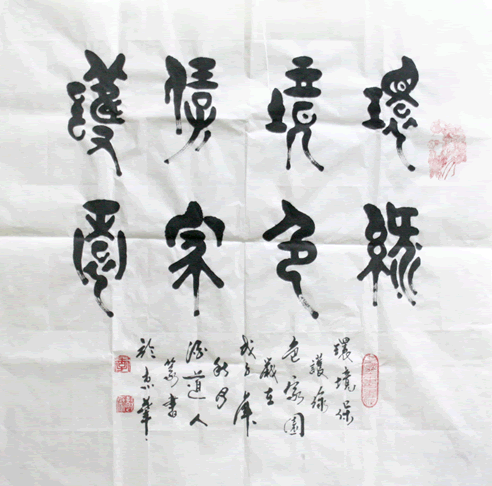 環境保護
綠色家園
環境保
護綠
色家園
歲在
戊子年
秋月
道人
篆書
於京華